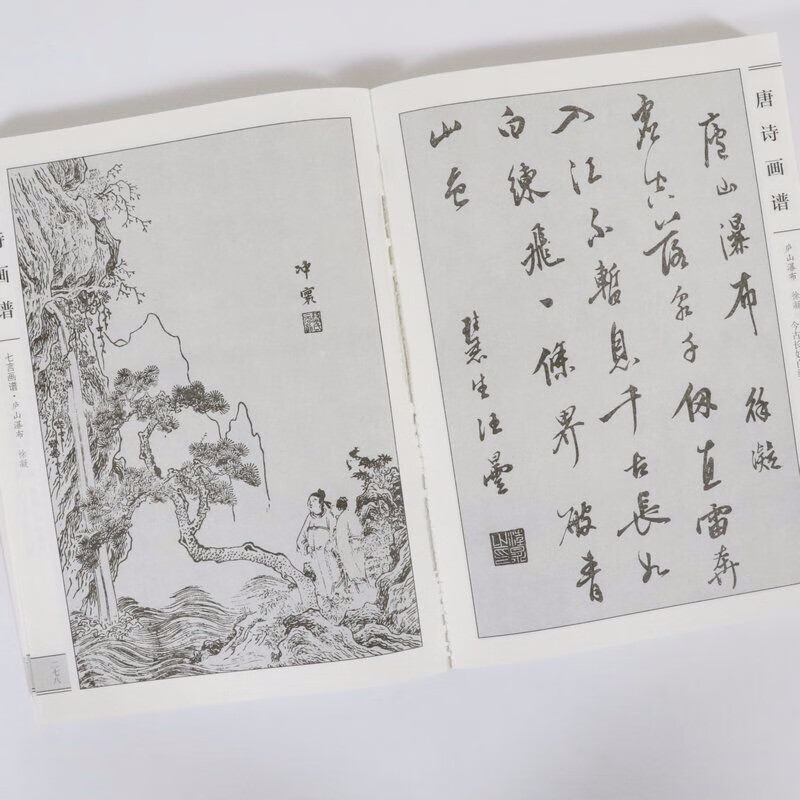 唐诗画谱
庐山瀑布 徐凝 今古长如白
廬山瀑布 徐凝
虛空落泉千仞直雷奔
入江不暫息千古長如
白練飛一條界破青
山色
慧生汪
冲寰
诗画谱
七言画谱·庐山瀑布 徐凝
一七八